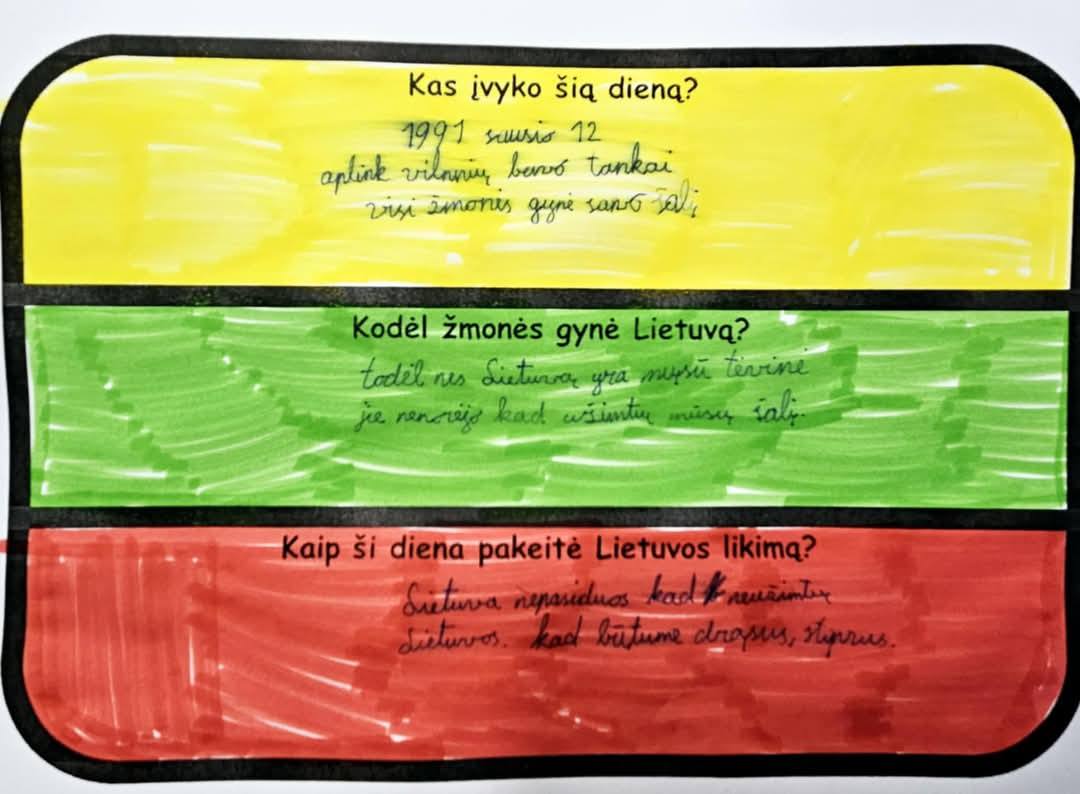 Kas įvyko šią dieną?
1991 sausio 12
aplink vilnnių buvo tankai
visi žmonės gynė savo šalį
Kodėl žmonės gynė Lietuvą?
todėl nes Lietuva yra mųsū tėvinė
jie nenorėjo kad užimtų mūsų šalį.
Kaip ši diena pakeitė Lietuvos likimą?
Lietuva nepasiduos kad neužimtų
Lietuvos. kad būtume drąsus, stiprus.